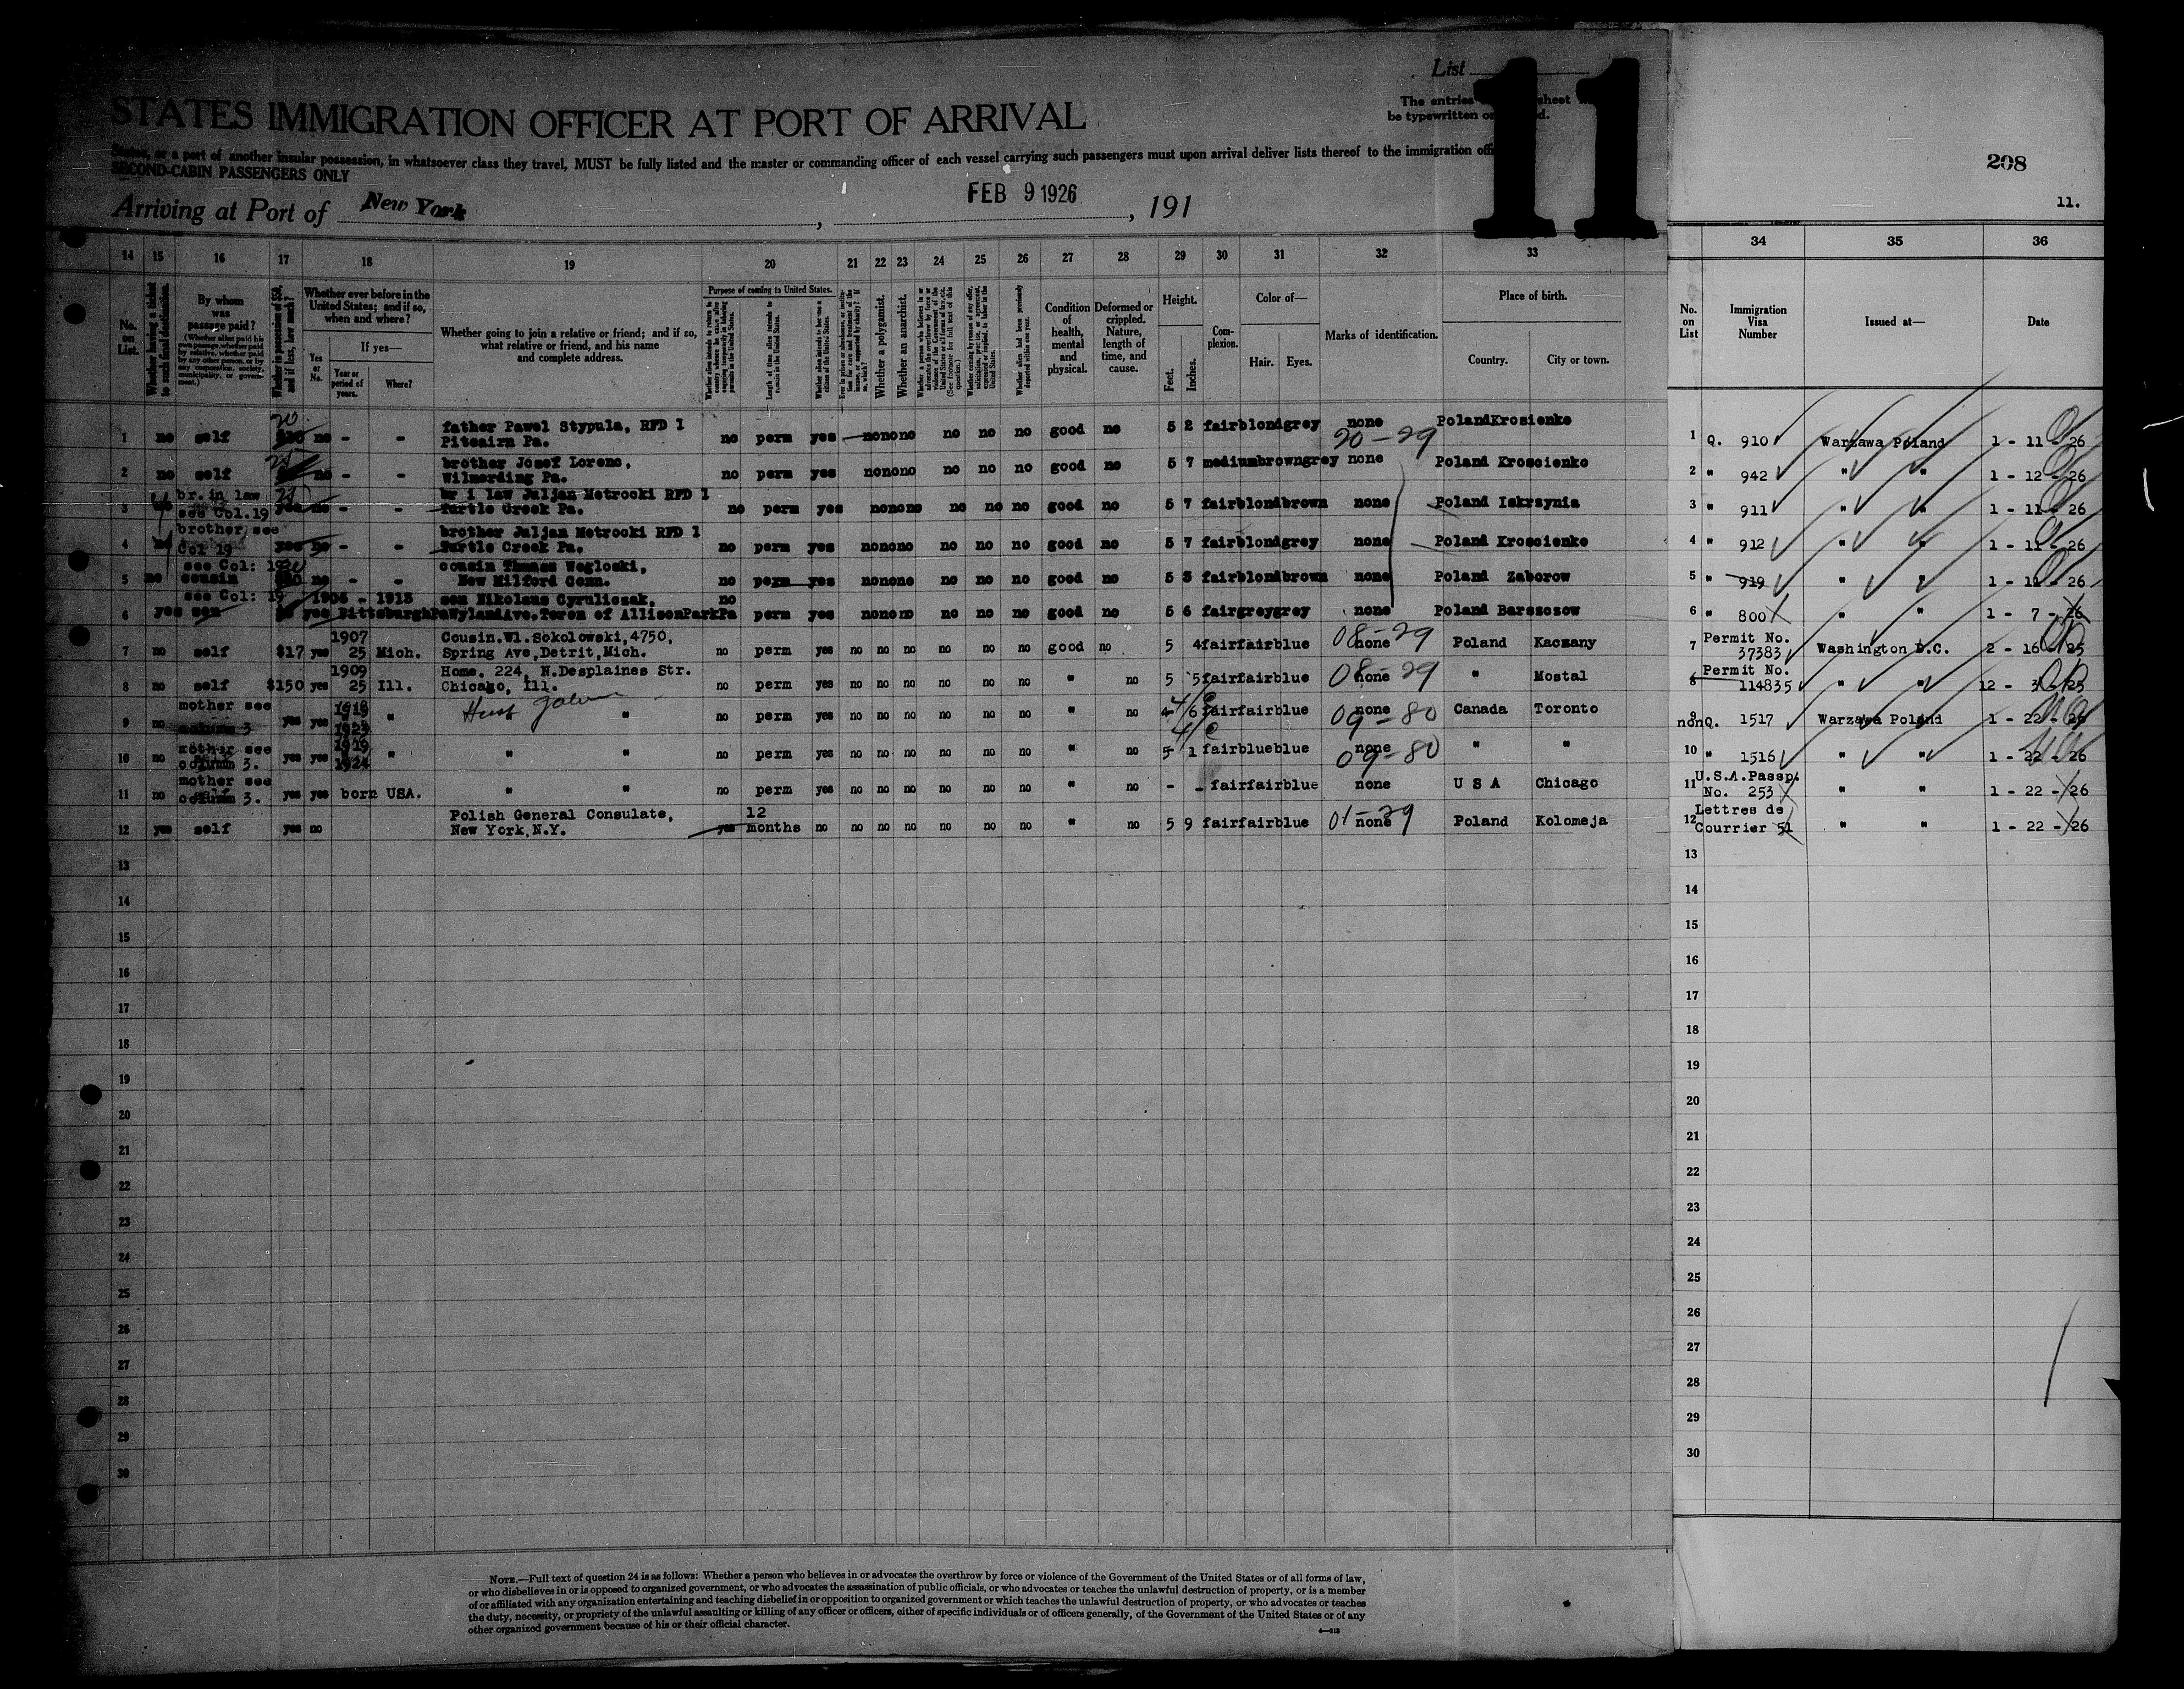 List
11
The entries sheet
be typewritten or
STATES IMMIGRATION OFFICER AT PORT OF ARRIVAL
States, or a port of another insular possession, in whatsoever class they travel, MUST be fully listed and the master or commanding officer of each vessel carrying such passengers must upon arrival deliver lists thereof to the immigration offi
SECOND-CABIN PASSENGERS ONLY
Arriving at Port of New York, FEB 9 1926, 191
208
11.
14 15 16 17 18 19 20 21 22 23 24 25 26 27 28 29 30 31 32 33
34 35 36
No. on List.
Whether having a ticket to such final destination.
By whom was passage paid?
(Whether alien paid his own passage, whether paid by relative, whether paid by any other person, or by any corporation, society, municipality, or government.)
Whether in possession of $50, and if less, how much?
Whether ever before in the United States; and if so, when and where?
Yes or No.
If yes—
Year or period of years.
Where?
Whether going to join a relative or friend; and if so, what relative or friend, and his name and complete address.
Purpose of coming to United States.
Length of time alien intends to remain in the United States.
Whether alien intends to become a citizen of the United States.
Whether a polygamist.
Whether an anarchist.
Whether alien had been previously deported within one year.
Condition of health, mental and physical.
Deformed or crippled. Nature, length of time, and cause.
Height.
Feet. Inches.
Complexion.
Color of—
Hair. Eyes.
Marks of identification.
Place of birth.
Country. City or town.
No. on List
Immigration Visa Number
Issued at—
Date
20
father Pawel Stypula, RFD 1
1 no self no - - Pitcairn Pa. no perm yes — no no no no no no good no 5 2 fair blond grey none Poland Krosienko
1 Q. 910 Warzawa Poland 1 - 11 - 26
20-29
brother Josef Lorenc,
2 no self no - - Wilmerding Pa. no perm yes no no no no no no good no 5 7 medium brown grey none Poland Kroscienko
2 " 942 " " 1 - 12 - 26
br. in law br i law Juljan Metrocki RFD 1
3 see Col.19 yes no - - Turtle Creek Pa. no perm yes no no no no no no good no 5 7 fair blond brown none Poland Iskrzynia
3 " 911 " " 1 - 11 - 26
brother see brother Juljan Metrocki RFD 1
4 Col 19 yes no - - Turtle Creek Pa. no perm yes no no no no no no good no 5 7 fair blond grey none Poland Kroscienko
4 " 912 " " 1 - 11 - 26
see Col: 19 cousin Thomas Wegloski,
5 no cousin no - - New Milford Conn. no perm yes no no no no no no good no 5 3 fair blond brown none Poland Zaborow
5 " 919 " " 1 - 11 - 26
see Col: 19 1906 - 1913 son Nikolaus Cyruliczak, no
6 yes son yes Pittsburgh Pa Wyland Ave. Teren of Allison Park Pa perm yes no no no no no no good no 5 6 fair grey grey none Poland Barszczow
6 " 800 " " 1 - 7 - 26
1907 Cousin.Wl.Sokolowski,4750,
7 no self $17 yes 25 Mich. Spring Ave,Detrit,Mich. no perm yes no no no no no no good no 5 4 fair fair blue none Poland Kaczany
08-29
7 Permit No. 37383 Washington D.C. 2 - 16 - 25
1909 Home. 224, N.Desplaines Str.
8 no self $150 yes 25 Ill. Chicago, Ill. no perm yes no no no no no no " no 5 5 fair fair blue none " Mostal
08 29
8 Permit No. 114835 " " 12 - 3 - 25
mother see 1918
9 no column 3 yes yes 1923 " " no perm yes no no no no no no " no 4 6 fair fair blue none Canada Toronto
09-80
9 nonQ. 1517 Warzawa Poland 1 - 22 - 26
mother see 1919
10 no column 3. yes yes 1924 " " " no perm yes no no no no no no " no 5 1 fair blue blue none " "
09-80
10 " 1516 " " 1 - 22 - 26
mother see
11 no column 3. yes yes born USA. " " no perm yes no no no no no no " no - - fair fair blue none U S A Chicago
11 U.S.A.Passp. No. 253 " " 1 - 22 - 26
Polish General Consulate, 12
12 yes self yes no New York,N.Y. yes months no no no no no no no " no 5 9 fair fair blue none Poland Kolomeja
01-29
12 Lettres de Courrier 51 " " 1 - 22 - 26
13 13
14 14
15 15
16 16
17 17
18 18
19 19
20 20
21 21
22 22
23 23
24 24
25 25
26 26
27 27
28 28
29 29
30 30
NOTE.—Full text of question 24 is as follows: Whether a person who believes in or advocates the overthrow by force or violence of the Government of the United States or of all forms of law,
or who disbelieves in or is opposed to organized government, or who advocates the assassination of public officials, or who advocates or teaches the unlawful destruction of property, or is a member
of or affiliated with any organization entertaining and teaching disbelief in or opposition to organized government or which teaches the unlawful destruction of property, or who advocates or teaches
the duty, necessity, or propriety of the unlawful assaulting or killing of any officer or officers, either of specific individuals or of officers generally, of the Government of the United States or of any
other organized government because of his or their official character.